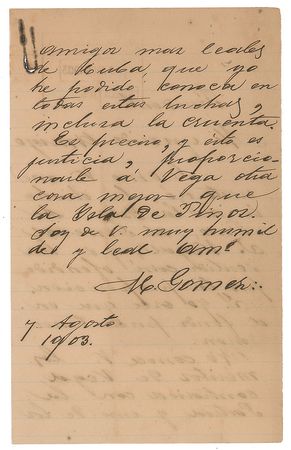 amigos mas leales
de Cuba, que yo
he podido conocer en
todas estas luchas,
inclusa la cruenta.
Es preciso, y esto es
justicia, proporcio-
narle á Vega otra
cosa mejor que
la Isla de Pinos
Soy de V. muy humil
de y leal amº
M. Gomez.
7 Agosto
1903.